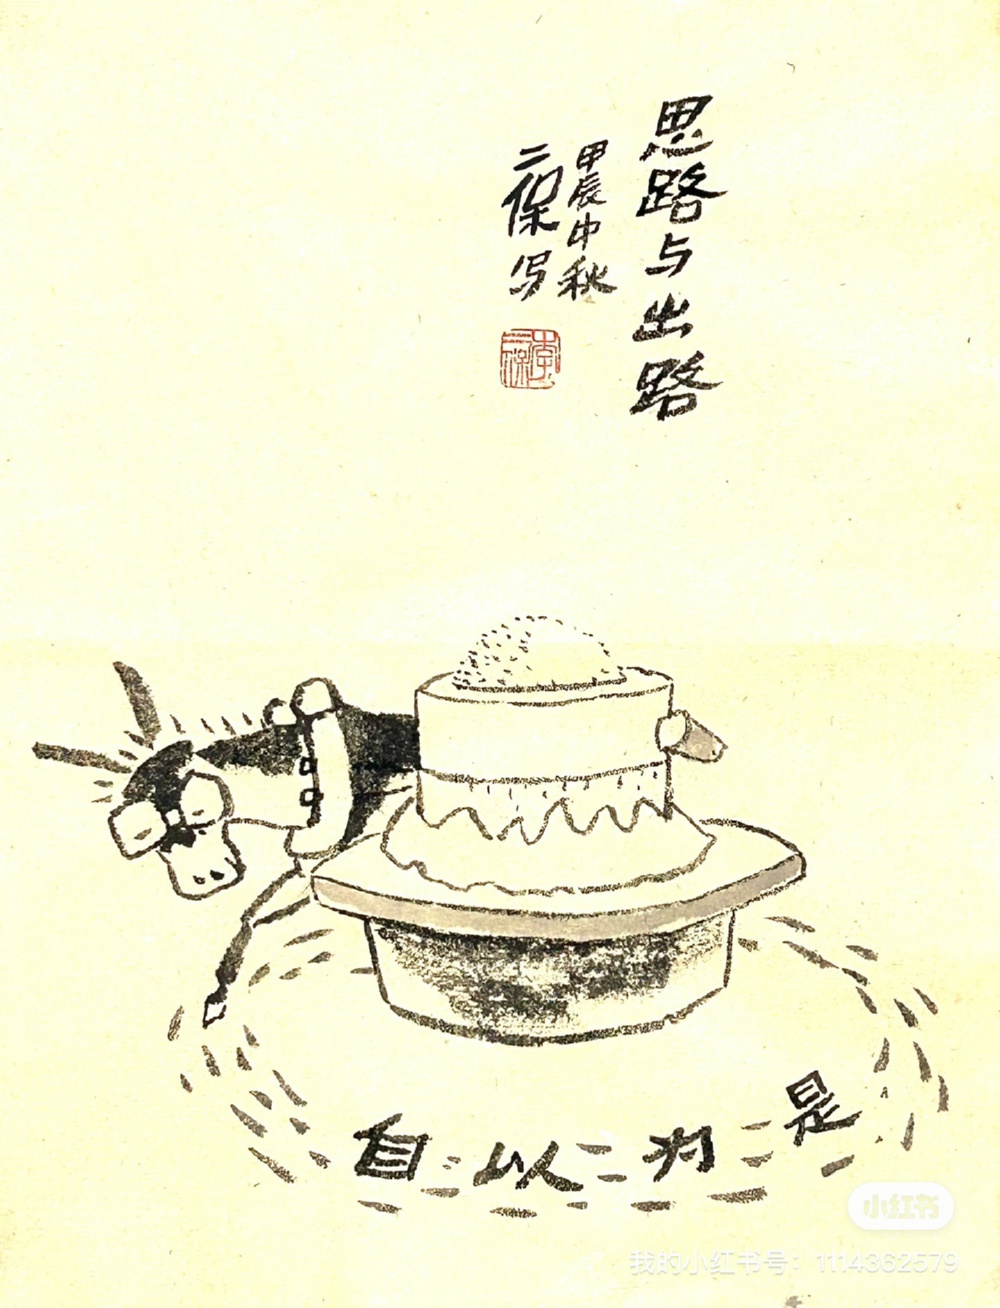 思路与出路
甲辰中秋
二保写
李二保
自以为是
小红书
我的小红书号：1114362579